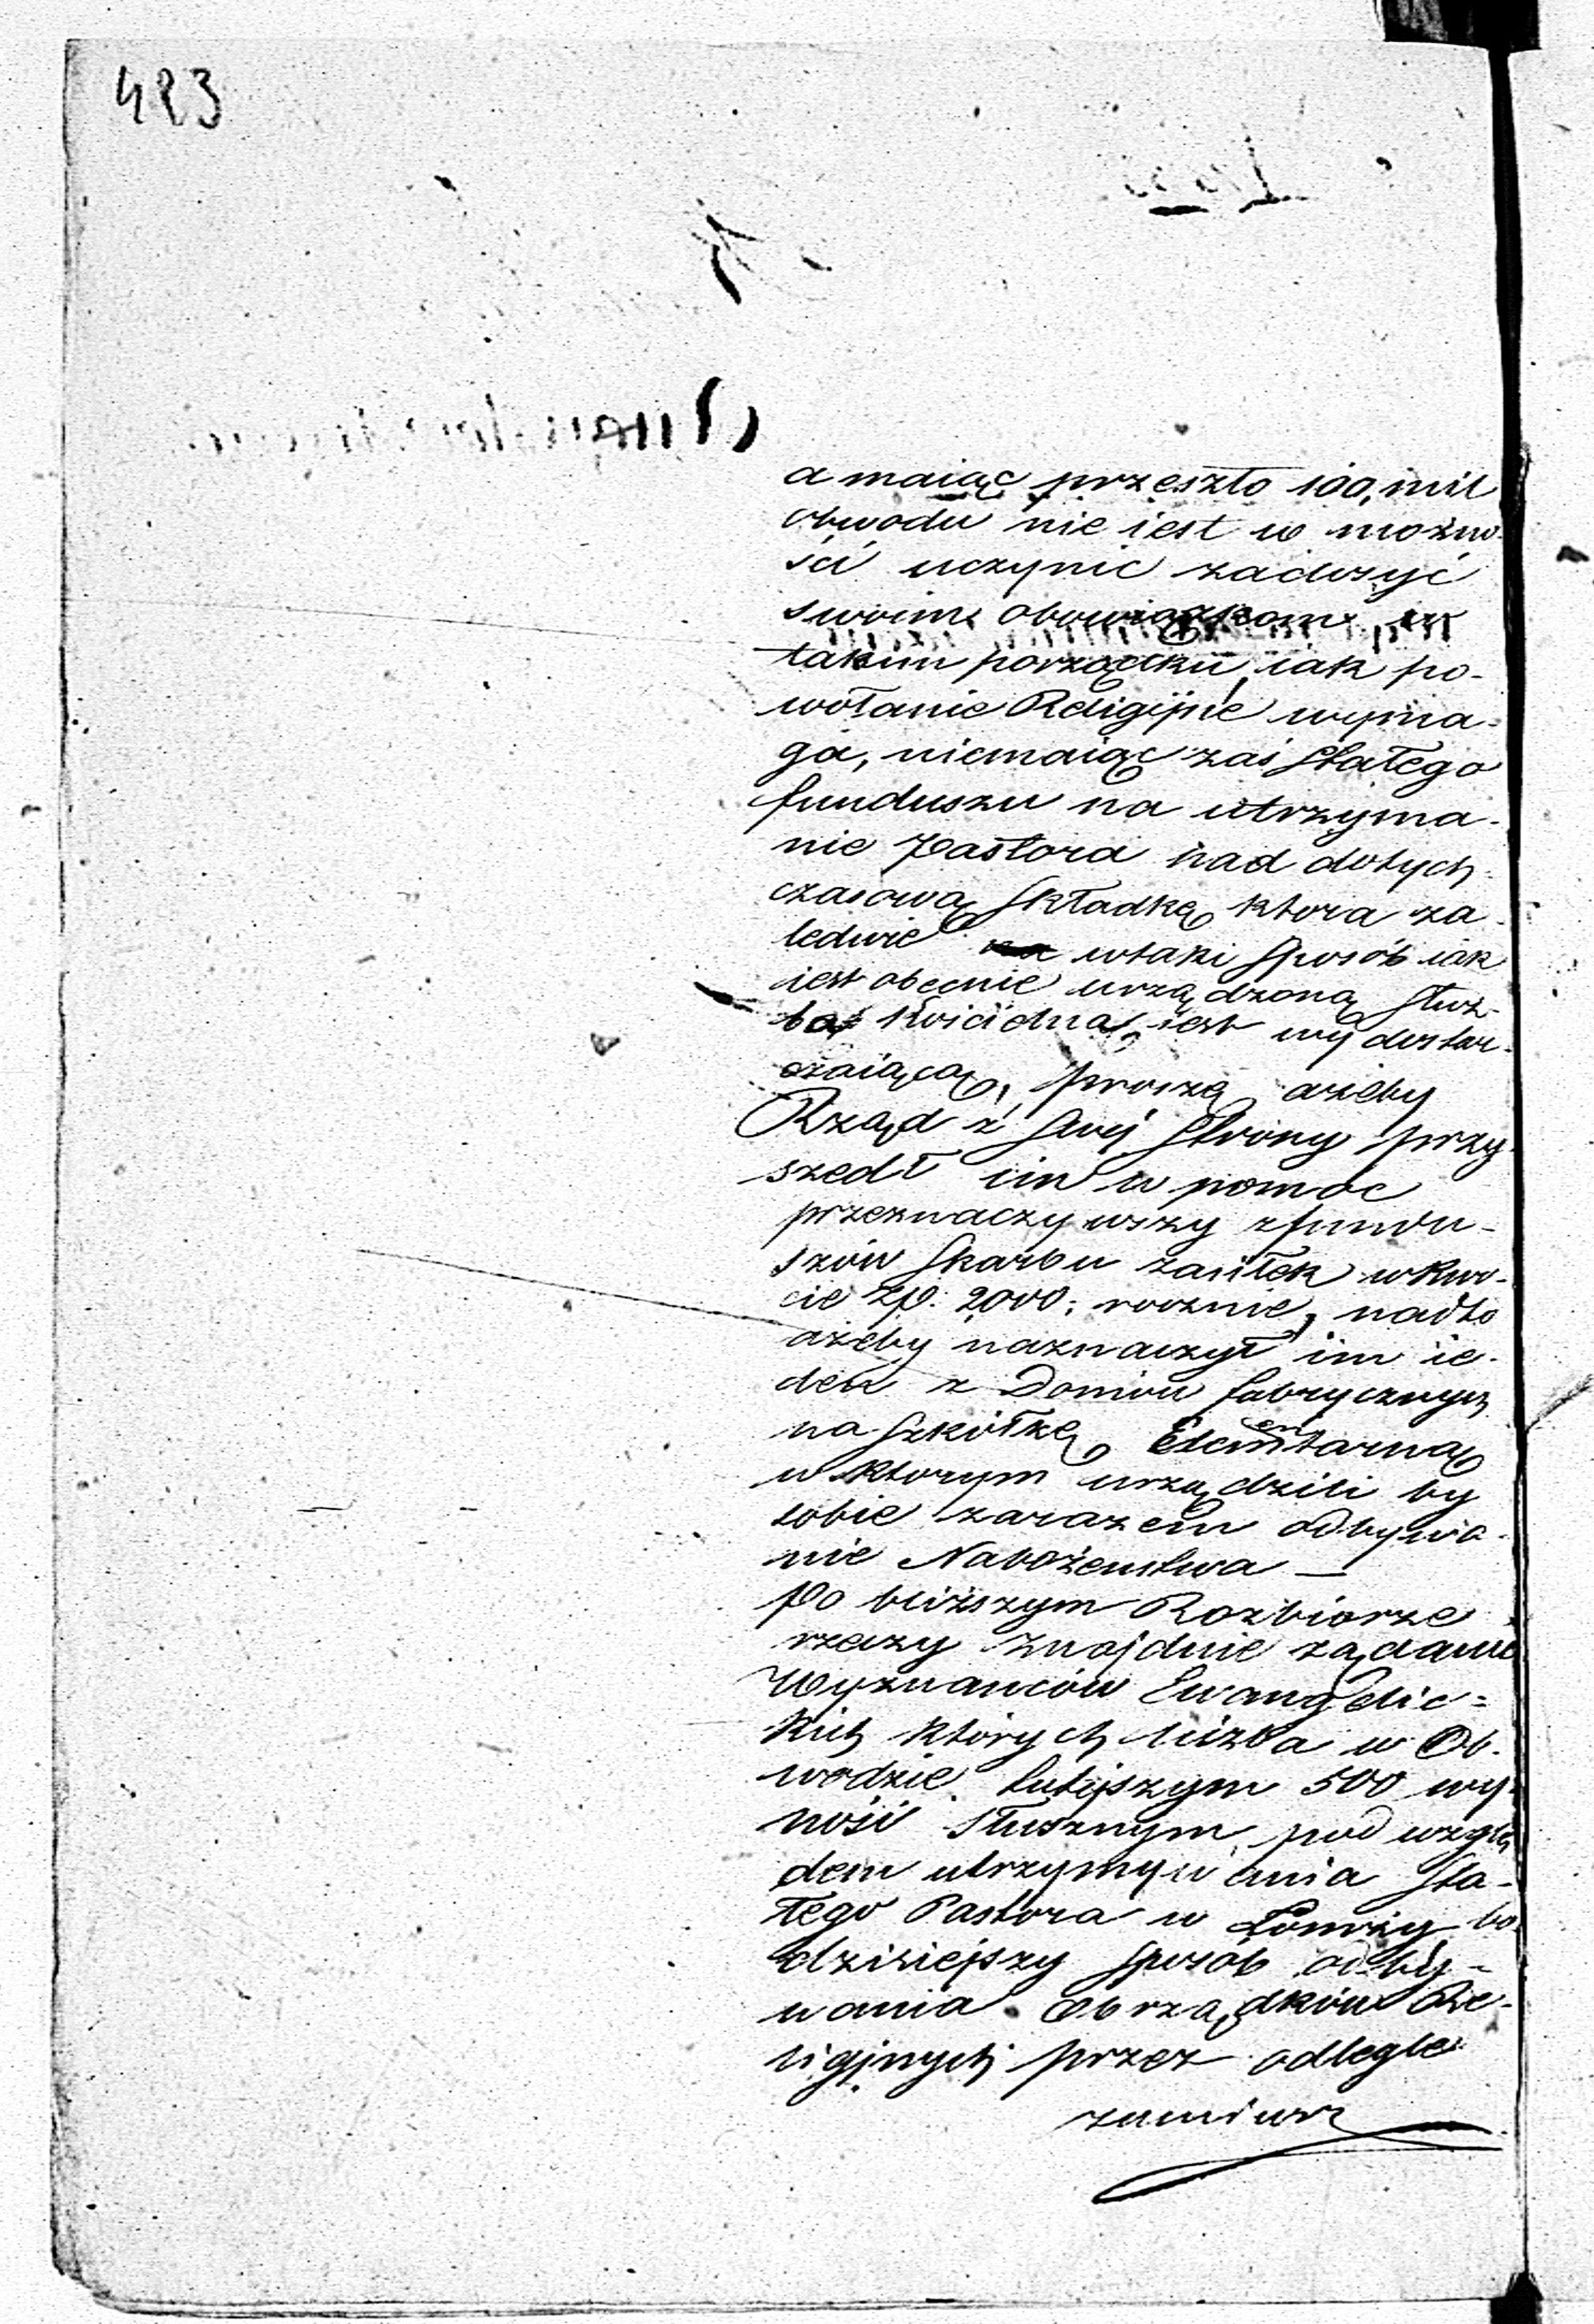 423
a maiąc przeszło 100, mil
obwodu nie iest w możno-
ści uczynić zadosyć
swoim obowiązkom w
takim porządku, iak po-
wołanie Religijne wyma-
ga, niemaiąc zaś stałego
funduszu na utrzyma-
nie Pastora nad dotych-
czasową składkę ktora za-
ledwie w taki sposób iak
iest obecnie urządzoną służ-
ba Kościelna, iest wydostar-
czaiącą, proszą ażeby
Rząd z swej strony przy-
szedł im w pomoc
przeznaczywszy z fundu-
szów skarbu zasiłek w kwo-
cie Zp: 2000: rocznie, nadto
ażeby naznaczył im ie-
den z Domow fabrycznych
na szkółkę Elementarną
w ktorym urządzili by
sobie zarazem odbywa-
nie Nabożeństwa —
Po bliższym Rozbiorze
rzeczy znajduie żądanie
Wyznanców Ewangelic=
kich których liczba w Ob-
wodzie tutejszym 500 wy-
nosi słusznym pod wzglę-
dem utrzymywania sta-
łego Pastora w Łomży bo
dzisiejszy sposób odby-
wania Obrządków Re-
ligijnych przez odległe